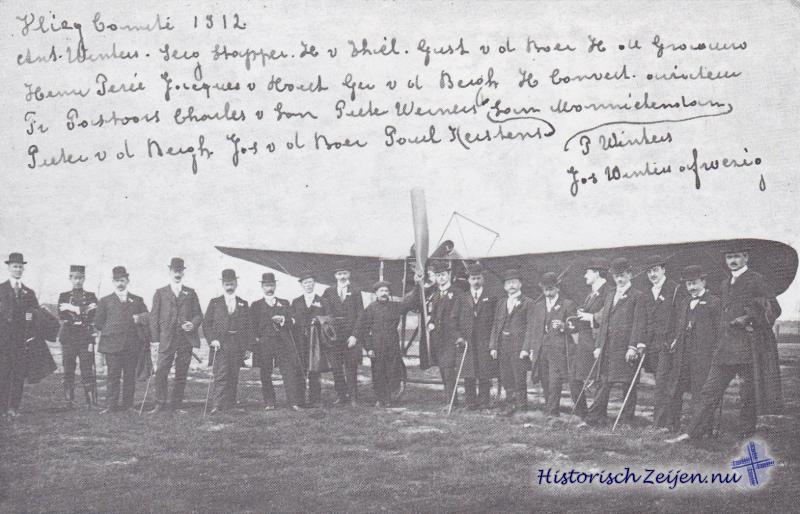 Vlieg Comité 1912
Ant. Winters. Serg Stapper. H v Thiel. Gust v d Boer H de
Henri Perée Jacques v Hout Ger v d Bergh H Convert. aviateur
Fr Pastoors Charles v Piete Werners
Pieter v d Bergh Jos v d Boer Paul Kerstens
P Winters
Jos Winters afwezig
Historisch Zeijen.nu